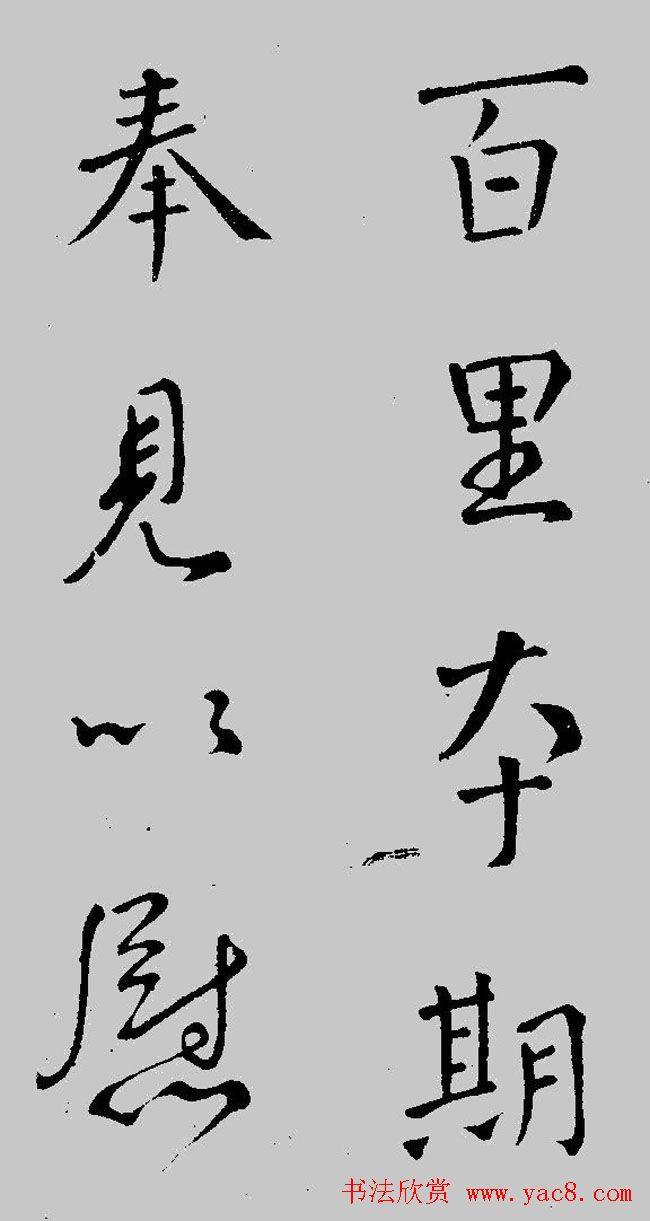 百里本期
奉見以慰
书法欣赏 www.yac8.com